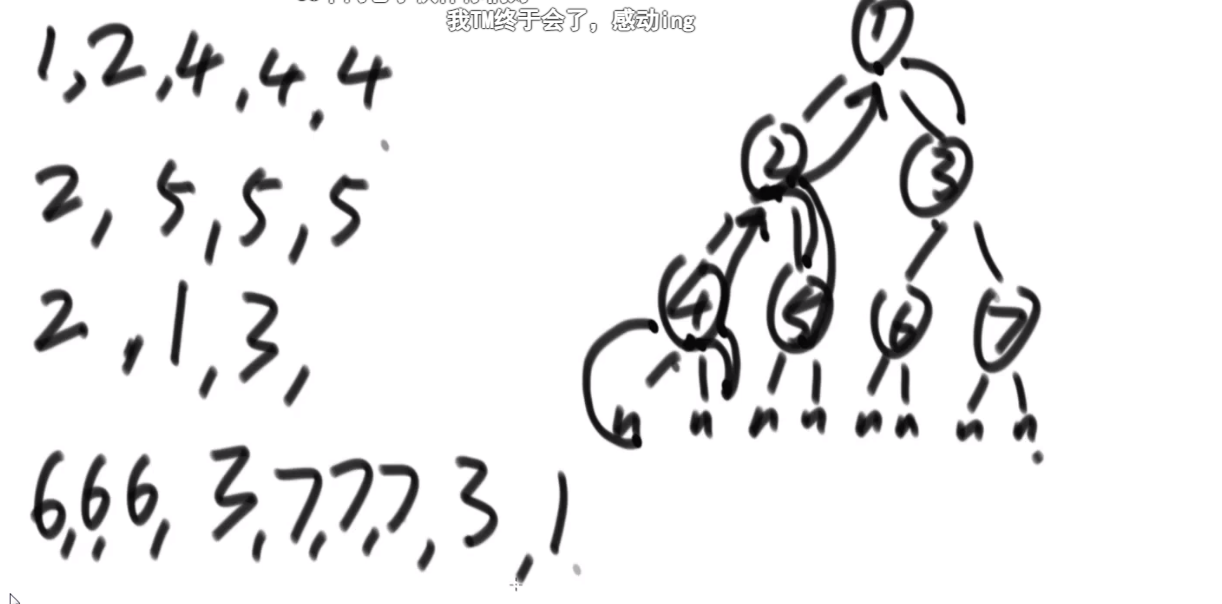 我TM终于会了，感动ing
1,2,4,4,4
2,5,5,5
2,1,3,
6,6,6,3,7,7,7,3,1
1
2 3
4 5 6 7
n n n n n n n n